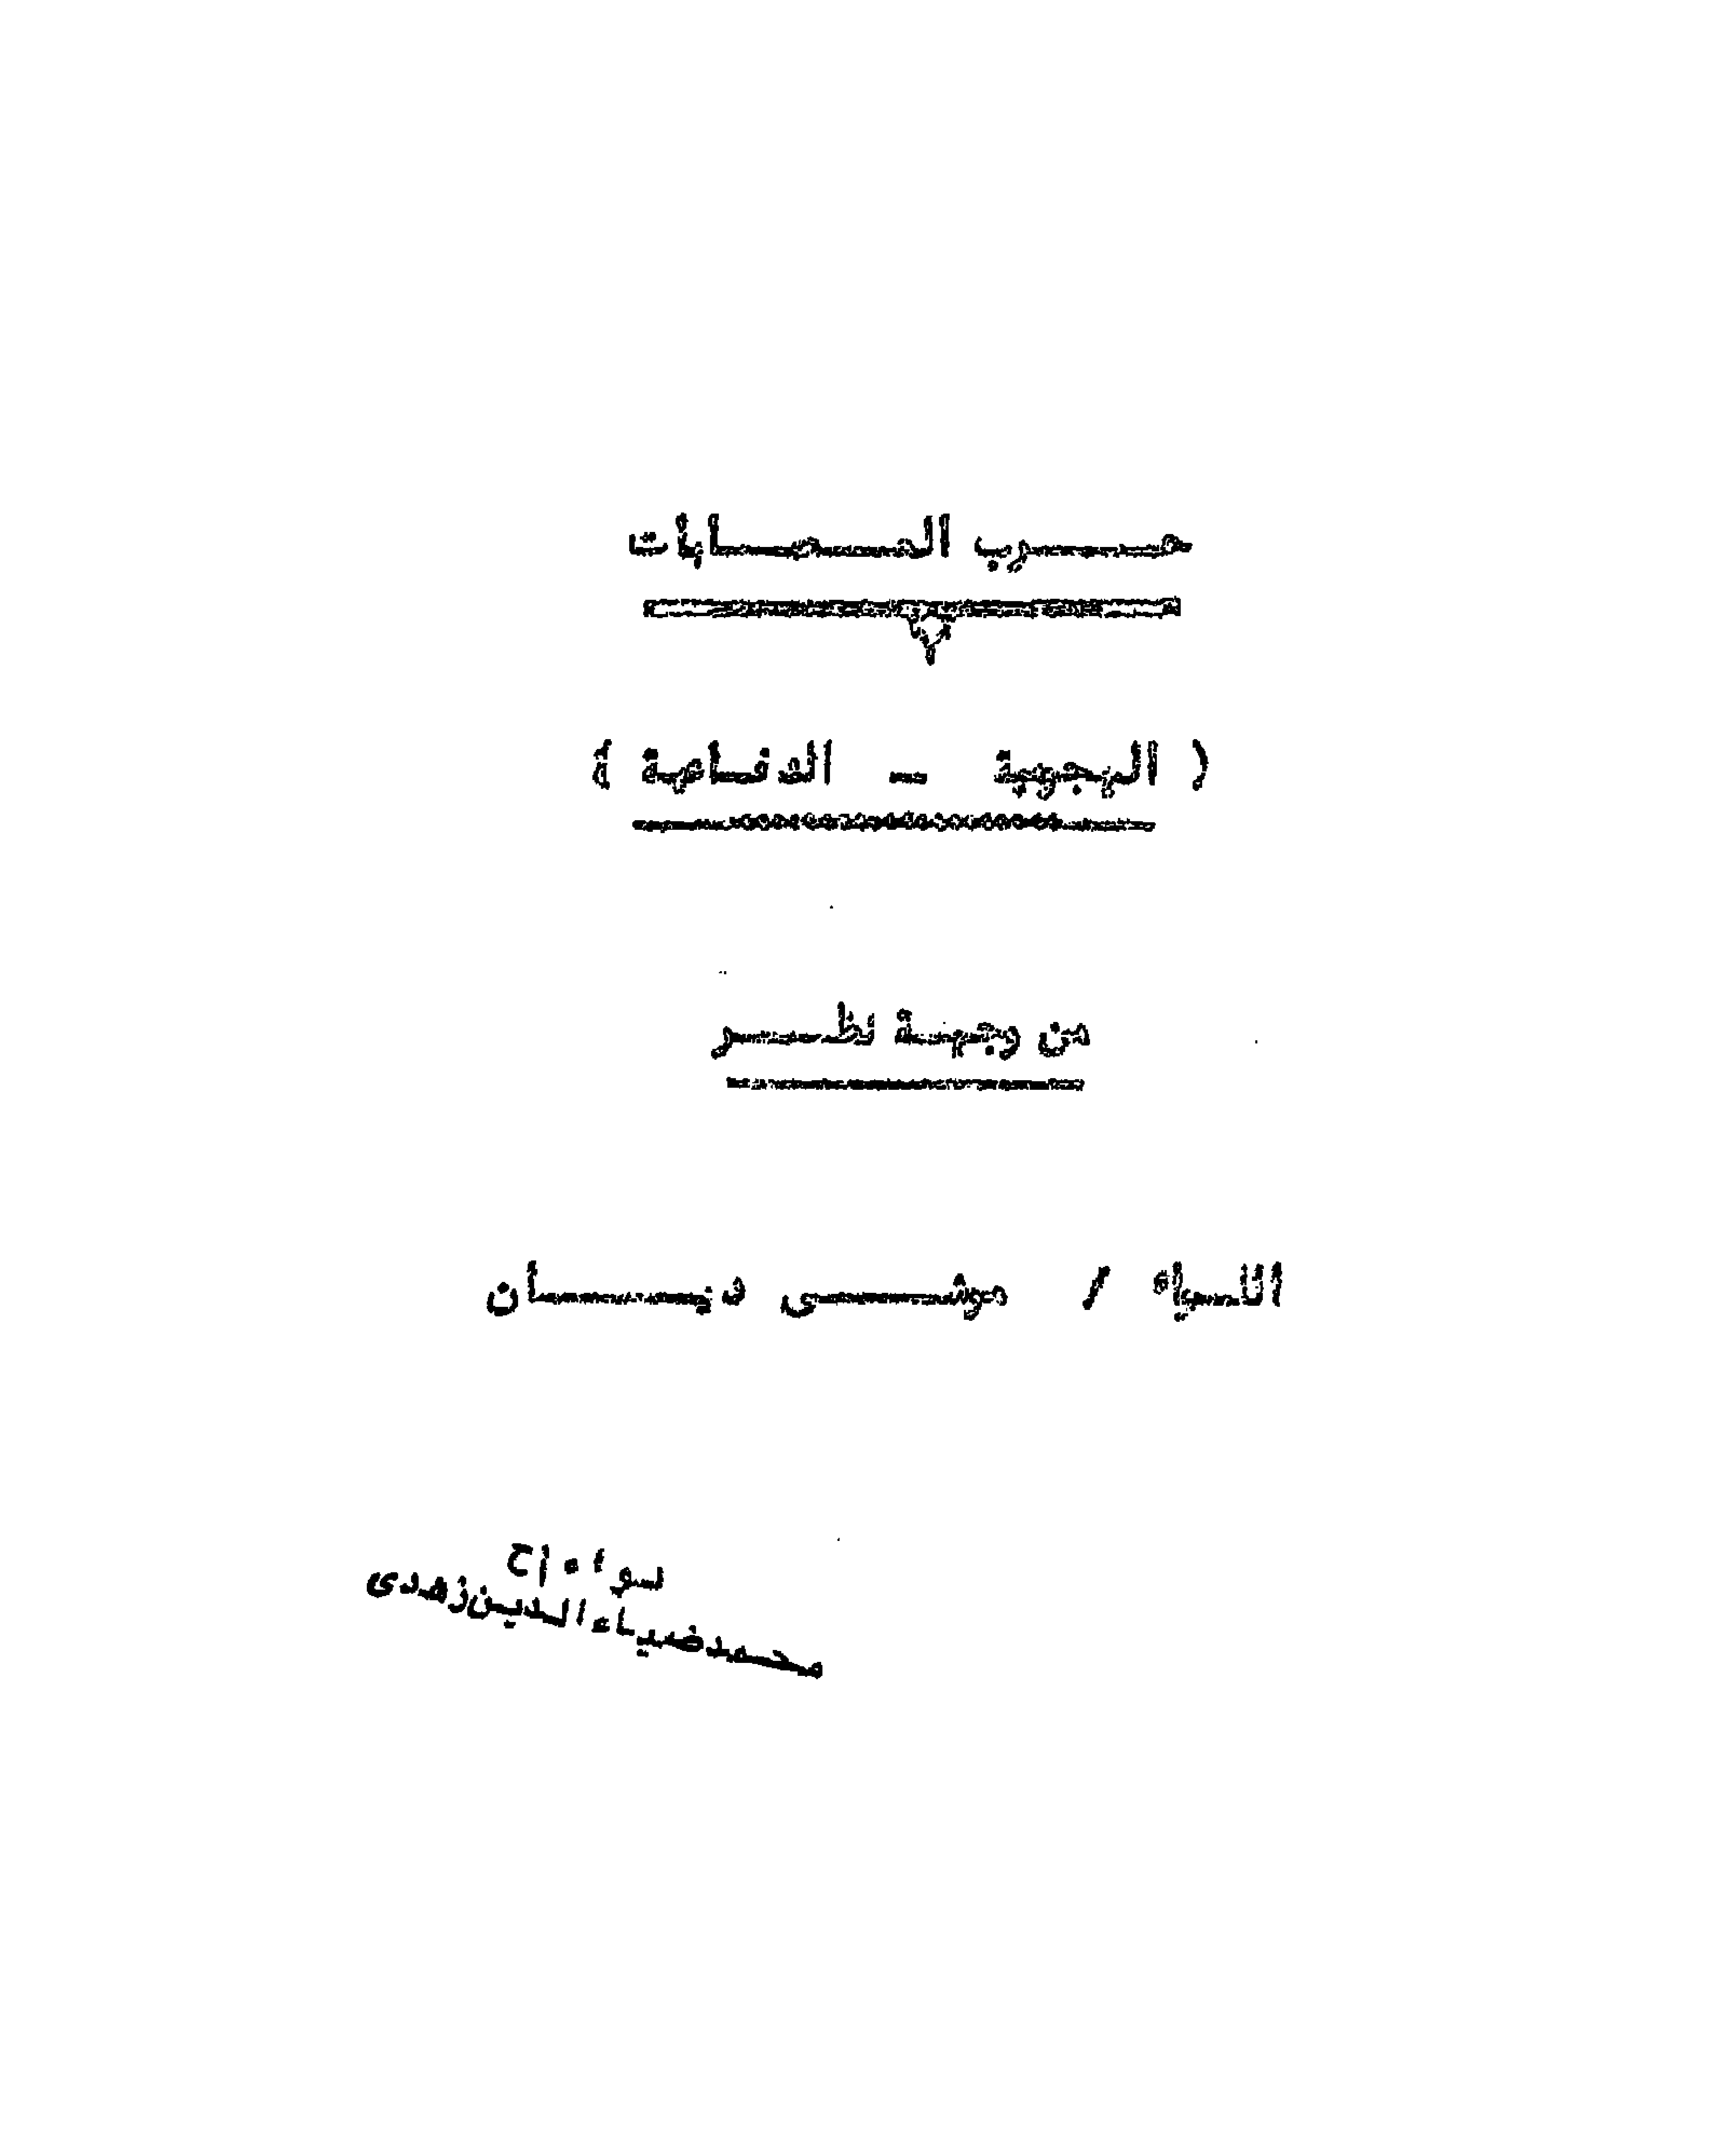 حرب العصابات
( الهجومية – الدفاعية )
من وجهة نظر
اللواء / موشى ديان
لواء أ ح
محمد ضياء الدين زهدى